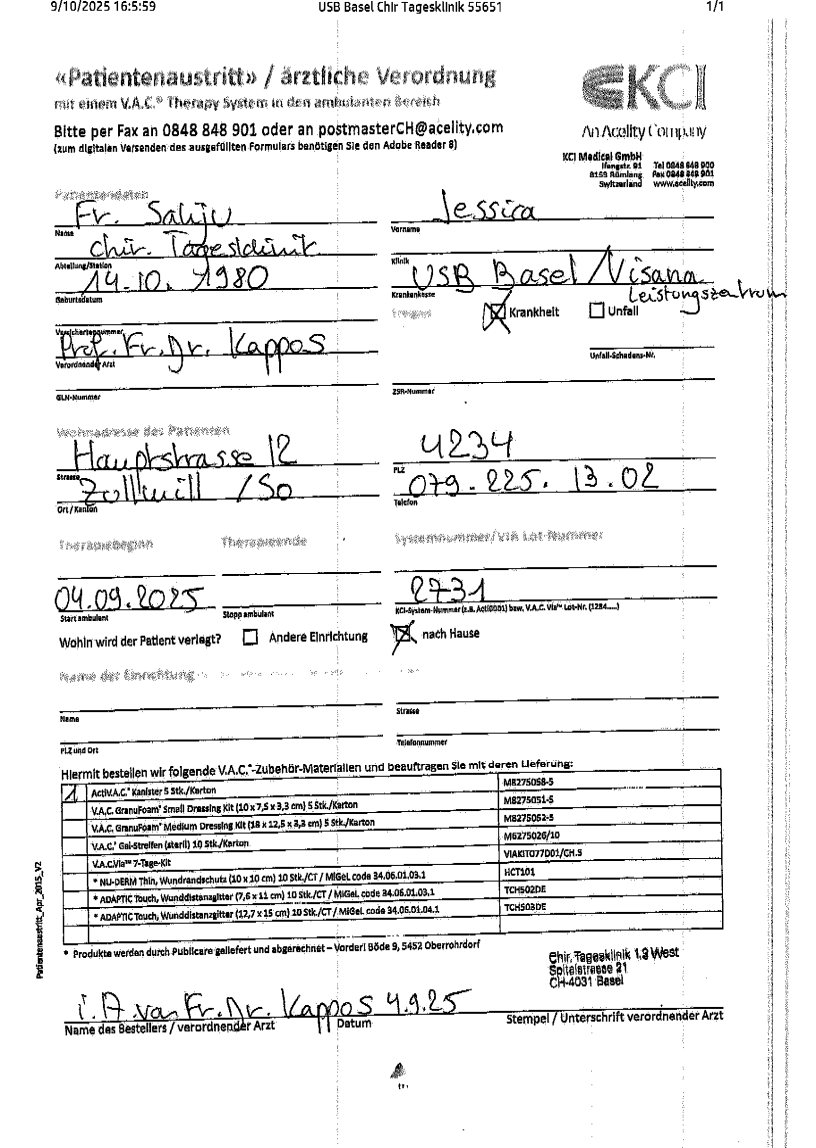 9/10/2025 16:5:59 USB Basel Chir Tagesklinik 55651 1/1
«Patientenaustritt» / ärztliche Verordnung
mit einem V.A.C.® Therapy System in den ambulanten Bereich
Bitte per Fax an 0848 848 901 oder an postmasterCH@acelity.com
(zum digitalen Versenden des ausgefüllten Formulars benötigen Sie den Adobe Reader 8)
KCI
An Acelity Company
KCI Medical GmbH
Ifangstr. 91 Tel 0848 848 900
8153 Rümlang Fax 0848 848 901
Switzerland www.acelity.com
Patientendaten
Fr. Saliju Jessica
Name Vorname
Chir. Tagesklinik
Abteilung/Station Klinik
14.10.1980 USB Basel / Visana
Geburtsdatum Krankenkasse Leistungszentrum
Krankheit Unfall
Versichertennummer
Prof. Fr. Dr. Kappos
Verordnender Arzt Unfall-Schadens-Nr.
GLN-Nummer ZSR-Nummer
Wohnadresse des Patienten
Hauptstrasse 12 4234
Strasse PLZ
Zullwill / So 079.225.13.02
Ort / Kanton Telefon
Therapiebeginn Therapieende Systemnummer/VIA Lot-Nummer
04.09.2025 2731
Start ambulant Stopp ambulant KCI-System-Nummer (z.B. Acti0001) bzw. V.A.C. Via™ Lot-Nr. (1284.....)
Wohin wird der Patient verlegt? Andere Einrichtung nach Hause
Name der Einrichtung
Name Strasse
PLZ und Ort Telefonnummer
Hiermit bestellen wir folgende V.A.C.®-Zubehör-Materialien und beauftragen Sie mit deren Lieferung:
1 ActiV.A.C.® Kanister 5 Stk./Karton M8275058-5
V.A.C. GranuFoam® Small Dressing Kit (10 x 7,5 x 3,3 cm) 5 Stk./Karton M8275051-5
V.A.C. GranuFoam® Medium Dressing Kit (18 x 12,5 x 3,3 cm) 5 Stk./Karton M8275052-5
V.A.C.® Gel-Streifen (steril) 10 Stk./Karton M6275026/10
V.A.C.Via™ 7-Tage-Kit VIAKIT077D01/CH.5
* NU-DERM Thin, Wundrandschutz (10 x 10 cm) 10 Stk./CT / MiGeL code 34.06.01.03.1 HCT101
* ADAPTIC Touch, Wunddistanzgitter (7,6 x 11 cm) 10 Stk./CT / MiGeL code 34.06.01.03.1 TCH502DE
* ADAPTIC Touch, Wunddistanzgitter (12,7 x 15 cm) 10 Stk./CT / MiGeL code 34.06.01.04.1 TCH503DE
* Produkte werden durch Publicare geliefert und abgerechnet – Vorderi Böde 9, 5452 Oberrohrdorf
Patientenaustritt_Apr_2015_V2
Chir. Tagesklinik 1.3 West
Spitalstrasse 21
CH-4031 Basel
i.A. von Fr. Dr. Kappos 4.9.25
Name des Bestellers / verordnender Arzt Datum Stempel / Unterschrift verordnender Arzt